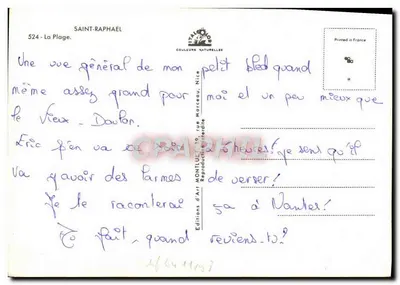 SAINT-RAPHAEL
524 - La Plage.
COULEURS NATURELLES
Printed in France
Une vue général de mon petit bled quand
même assez grand pour moi et un peu mieux que
le Vieux-Doulon.
Eric s'en va ce soir heures! je sens qu'il
va y avoir des larmes de verser!
Je te raconterai ça à Nantes!
Au fait, quand reviens-tu?
Editions d'Art MONTLUC, rue Marceau, Nice